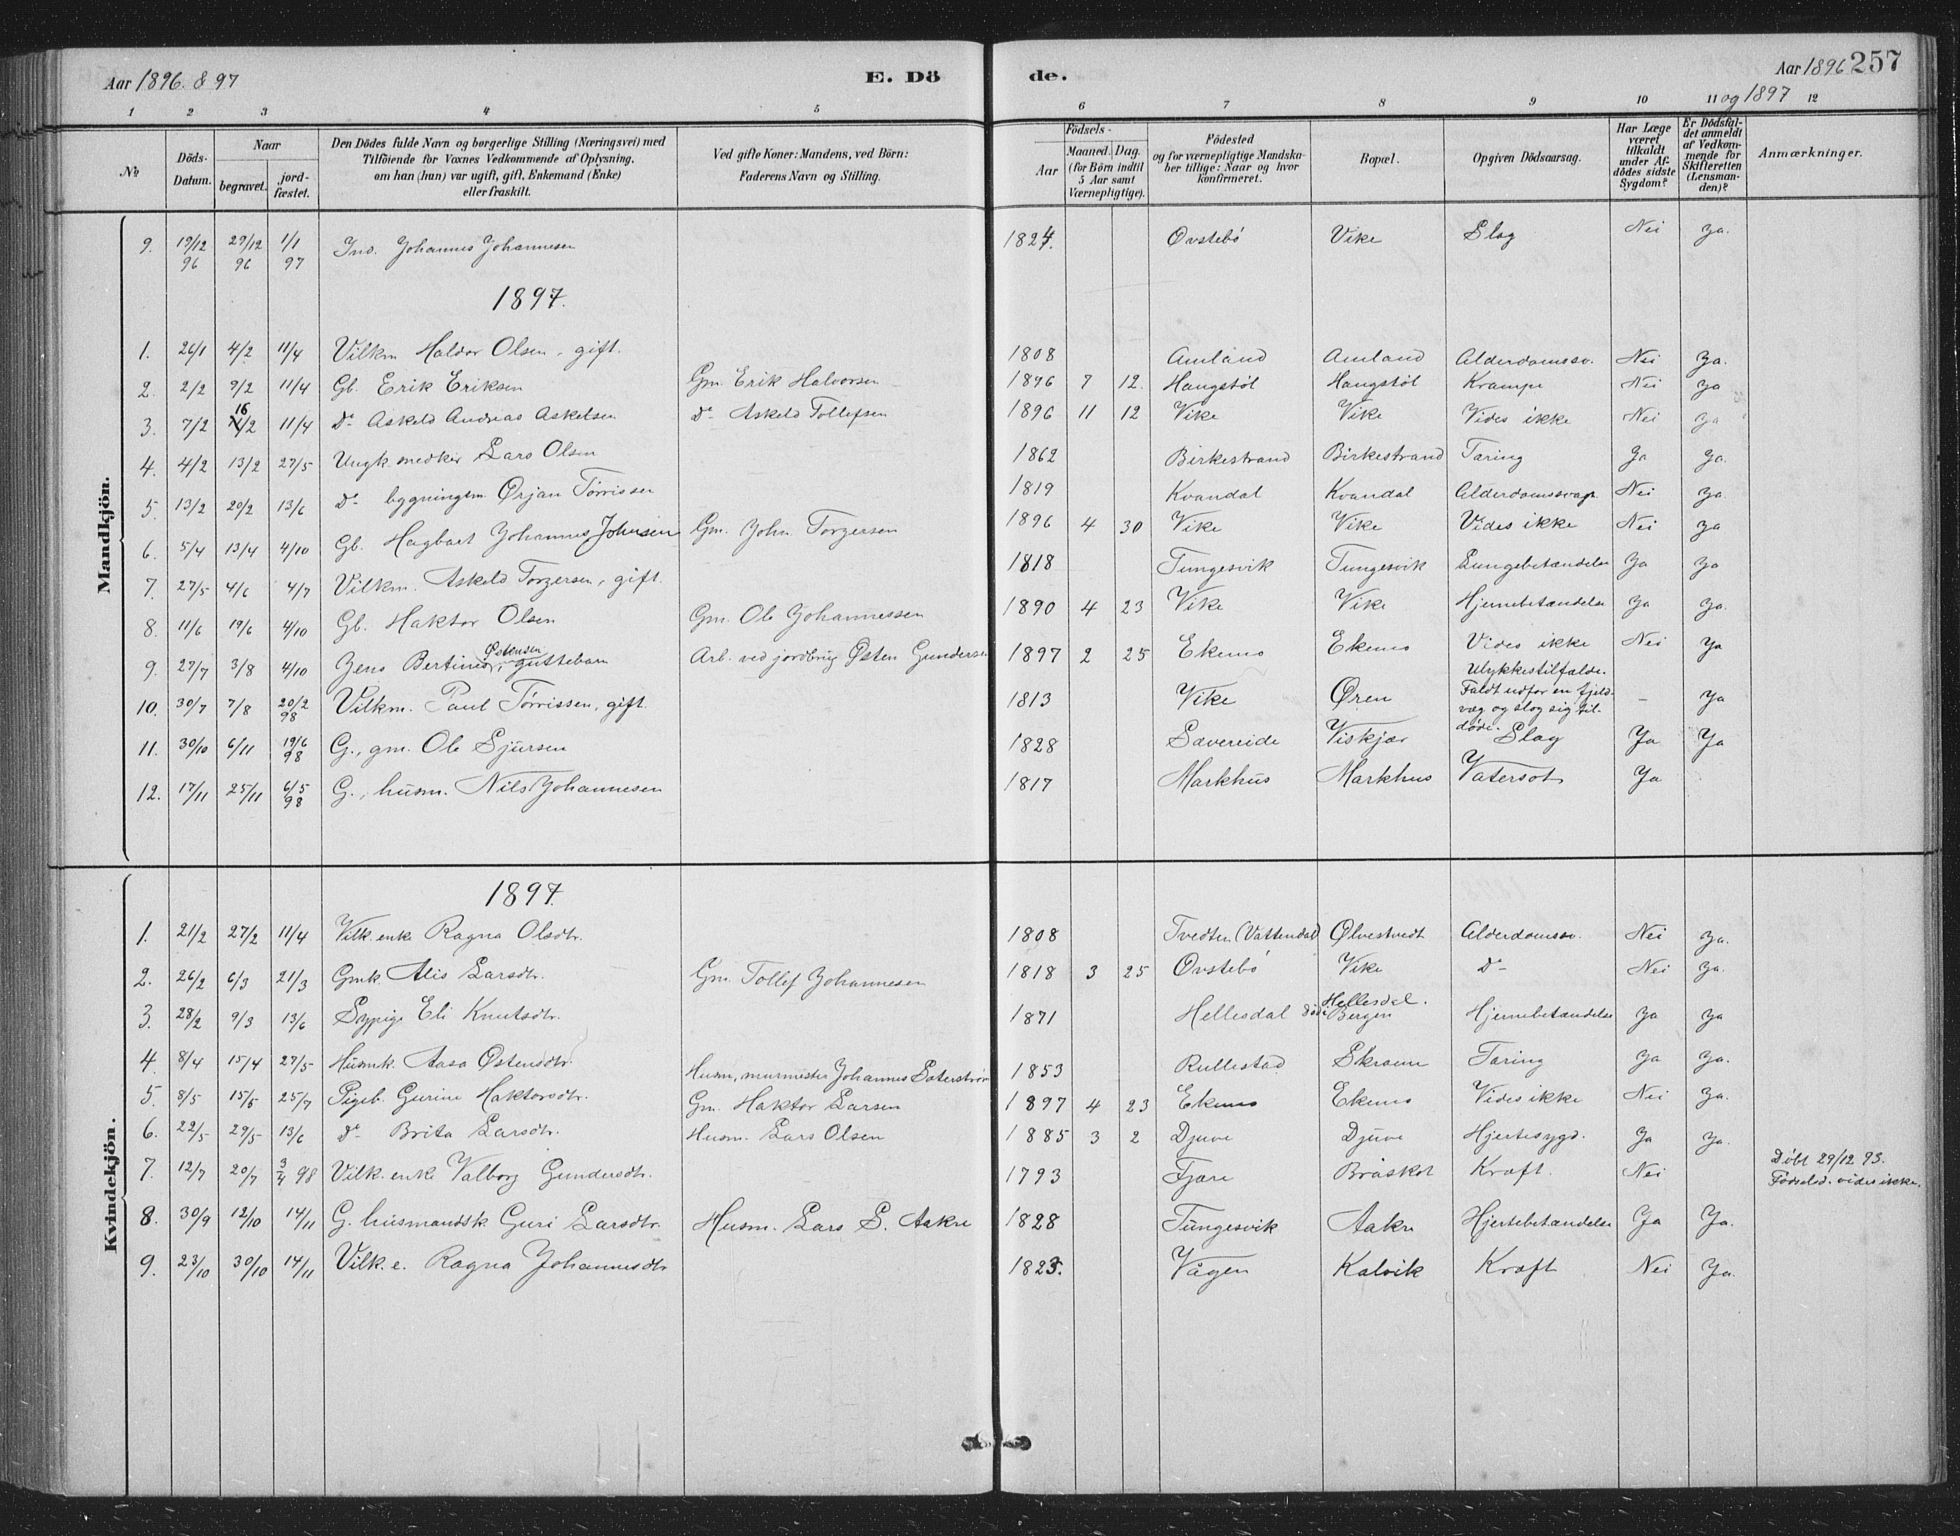 Aar 1896. & 97
E. Dö
de.
Aar 1896 257
og 1897
1 2 3 4 5 6 7 8 9 10 11 12
No
Döds-Datum.
Naar
begravet.
jord-fæstet.
Den Dödes fulde Navn og borgerlige Stilling (Næringsvei) med
Tilföiende for Voxnes Vedkommende af Oplysning,
om han (hun) var ugift, gift, Enkemand (Enke)
eller fraskilt.
Ved gifte Koner: Mandens, ved Börn:
Faderens Navn og Stilling.
Födsels-
Aar
Maaned. Dag.
(for Börn indtil
5 Aar samt
Værnepligtige).
Födested
og for værnepligtige Mandska-
ber tillige: Naar og hvor
konfirmeret.
Bopæl.
Opgiven Dödsaarsag.
Har Læge
været
tilkaldt
under Af-
dödes sidste
Sygdom?
Er Dödsfal-
det anmeldt
af Vedkom-
mende for
Skifteretten
(Lensman-
den)?
Anmærkninger.
Mandkjön.
9. 19/12 96 29/12 96 1/1 97 Ino. Johannes Johannesen 1824 Øvstebö Vike Slag Nei Ja.
1897.
1. 26/1 4/2 11/4 Vilkm Haldor Olsen, gift. 1808 Amland Amland Alderdomssv. Nei Ja.
2. 2/2 9/2 11/4 Gb. Erik Eriksen Gm. Erik Halvorsen 1896 7 12. Haugstøl Haugstøl Krampe Nei Ja
3. 7/2 16/2 11/4 Do Askeld Andreas Askelsen Do Askeld Tollefsen 1896 11 12 Vike Vike Vides ikke Nei Ja
4. 4/2 13/2 27/5 Ungk. snedker Lars Olsen 1862 Birkestrand Birkestrand Tæring Ja Ja.
5. 13/2 20/2 13/6 Do bygningsm. Ørjan Tørrissen 1819 Kvandal Kvandal Alderdomssvagh Nei Ja
6. 5/4 13/4 4/10 Gb. Hagbart Johannes Johnsen Gm. John Torgersen 1896 4 30 Vike Vike Vides ikke Nei Ja
7. 27/5 4/6 4/7 Vilkm. Askeld Torgersen, gift. 1818 Tungesvik Tungesvik Lungebetændelse Ja Ja
8. 11/6 19/6 4/10 Gb. Haktor Olsen Gm. Ole Johannessen 1890 4 23 Vike Vike Hjernebetændelse Ja Ja.
9. 27/7 3/8 4/10 Jens Bertines Østensen, guttebarn Arb. ved jordbrug Østen Gundersen 1897 2 25 Ekemo Ekemo Vides ikke Nei Ja
10. 30/7 7/8 20/2 98 Vilkm. Paul Tørrissen, gift. 1813 Vike Øren Ulykkestilfælde. Faldt udfor en fjeld-
væg og slog sig til-
døde. - Ja
11. 30/10 6/11 19/6 98 G., gm. Ole Sjursen 1828 Sævereide Viskjær Slag Ja Ja
12. 17/11 25/11 6/5 98 G., husm. Nils Johannesen 1817 Markhus Markhus Vatersot Ja
Kvindekjön.
1897.
1. 21/2 27/2 11/4 Vilk. enke Ragna Olsdtr. 1808 Tvedten (Vattendal) Ølvestvedt Alderdomssv. Nei Ja.
2. 26/2 6/3 21/3 Gmk. Alis Larsdtr. Gm. Tollef Johannesen 1818 3 25 Øvstebö Vike Do Nei Ja.
3. 28/2 9/3 13/6 Sypige Eli Knutsdtr. 1871 Hellesdal Hellesdal. døde Bergen Hjernebetændelse Ja Ja
4. 8/4 15/4 27/5 Husmk. Aasa Østensdtr. Husm, murmester Johannes Sæterstrøm 1853 Rullestad Skramme Tæring Ja Ja.
5. 8/5 15/5 25/7 Pigeb. Gurine Haktorsdtr. Gm. Haktor Larsen 1897 4 23 Ekemo Ekemo Vides ikke Nei Ja.
6. 22/5 29/5 13/6 Do Brita Larsdtr. Husm. Lars Olsen 1885 3 2 Djuve Djuve Hjertesygd. Ja Ja.
7. 12/7 20/7 3/4 98 Vilk. enke Valborg Gundersdtr. 1793 Fjære Bråskot Kræft. Nei Døbt 29/12 93.
Fødselsd. vides ikke.
8. 30/9 12/10 14/11 G. husmandsk Guri Larsdtr. Husm. Lars S. Aakre 1828 Tungesvik Aakre Hjertebetændelse Ja Ja.
9. 23/10 30/10 14/11 Vilk. e. Ragna Johannesdtr 1823. Vågen Kalvik Kræft Nei Ja.